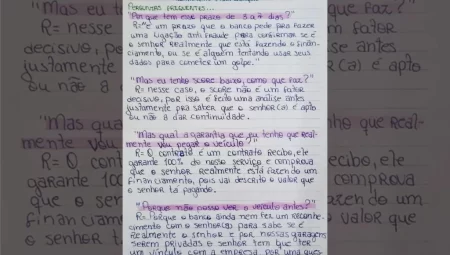 PERGUNTAS FREQUENTES...
"Por que tem esse prazo de 3 a 7 dias?"
R= É um prazo que o banco pede para fazer
uma ligação anti fraude para confirmar se é
o senhor realmente que está fazendo o finan-
ciamento, ou se é alguém tentando usar seus
dados para cometer um golpe.
"Mas eu tenho score baixo, como que faz?"
R= nesse caso, o score não é um fator
decisivo, por isso é feito uma análise antes
justamente pra saber que o senhor(a) é apto
ou não a dar continuidade.
"Mas qual a garantia que eu tenho que real-
mente vou pegar o veículo?"
R= O contrato é um contrato recibo, ele
garante 100% do nosso serviço e comprova
que o senhor realmente está fazendo um
financiamento, pois vai descrito o valor que
o senhor tá pagando.
"Porque não posso ver o veículo antes?"
R= Porque o banco ainda nem fez um reconhe-
cimento com o senhor(a) para saber se é
realmente o senhor e por nossas garagens
serem privadas o senhor tem que ter
um vínculo com a empresa, por uma ques-